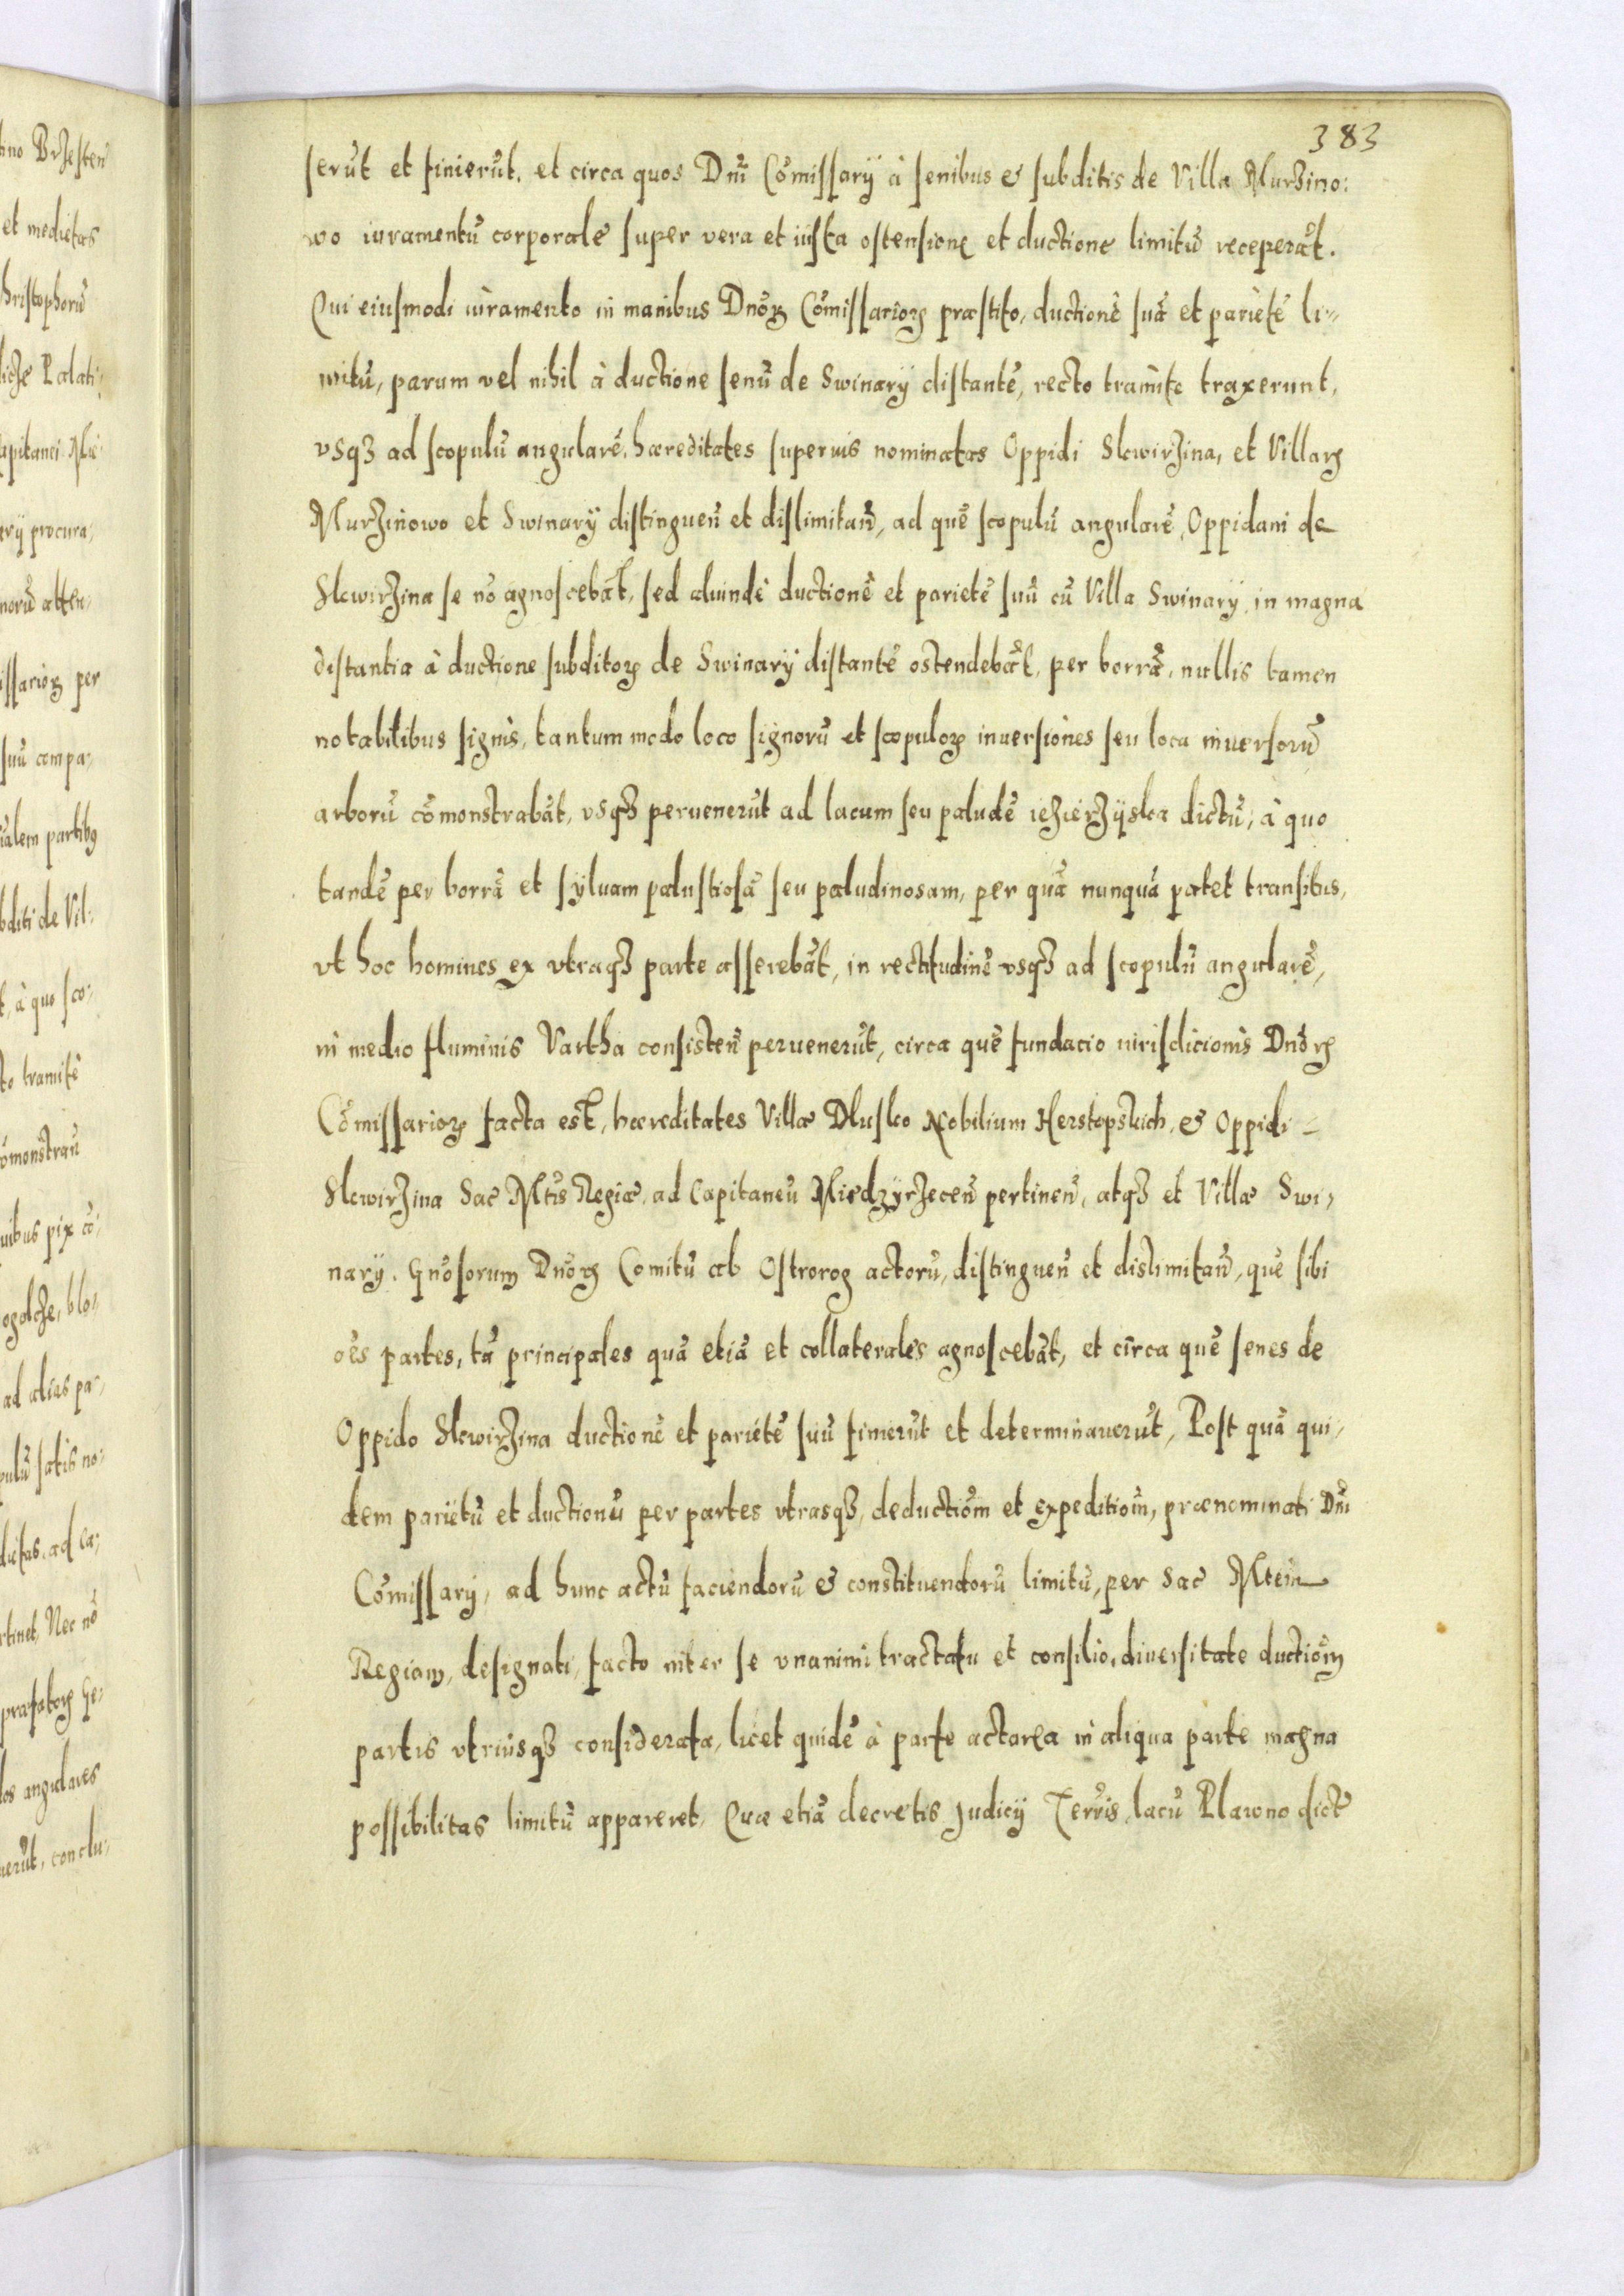 383
serūt et finierūt, et circa quos Dnī Cōmissarÿ à senibus & subditis de Villa Murzino:
wo iuramentū corporale super vera et iusta ostensione et ductione limitū receperāt.
Qui eiusmodi iuramento in manibus Dnōrꝝ Cōmissariorꝝ præstito, ductionē suā et parietē li-
mitū, parum vel nihil à ductione senū de Swinarÿ distantē, recto tramite traxerunt,
vsqꝫ ad scopulū angularē, hæreditates superius nominatas Oppidi Skwirzina, et Villarꝝ
Murzinowo et Swinarÿ distinguen̄ et dislimitan̄, ad quē scopulū angularē, Oppidani de
Skwirzina se nō agnoscebāt, sed aliundē ductionē et parietē suū cū Villa Swinarÿ, in magna
distantia à ductione subditorꝝ de Swinarÿ distantē ostendebāt, per borrā, nullis tamen
notabilibus signis, tantum modo loco signorū et scopulorꝝ inuersiones seu loca inuersorū
arborū cōmonstrabāt, vsqꝫ peruenerūt ad lacum seu paludē iezierzÿska dictū, à quo
tandē per borrā et sÿluam palustrosā seu paludinosam, per quā nunquā patet transitus,
vt hoc homines ex vtraqꝫ parte asserebāt, in rectitudinē vsqꝫ ad scopulū angularē,
in medio fluminis Vartha consisten̄ peruenerūt, circa quē fundacio iurisdicionis Dnōrꝝ
Cōmissariorꝝ facta est, hæreditates Villæ Dlusko Nobilium Herstopskich, & Oppidi
Skwirzina Sac Mtis Regiæ, ad Capitaneū Miedzÿrzecen̄ pertinen̄, atqꝫ et Villæ Swi,
narÿ. Gnōsorum Dnōrꝝ Comitū ab Ostrorog actorū, distinguen̄ et dislimitan̄, quē sibi
oēs partes, tā principales quā etiā et collaterales agnoscebāt, et circa quē senes de
Oppido Skwirzina ductionē et parietē suū finierūt et determinauerūt, Post quā qui,
dem parietū et ductionū per partes vtrasqꝫ, deductiōm et expeditiōm, prænominati Dnī
Cōmissarÿ, ad hunc actū faciendorū & constituendorū limitū, per Sac Mtem
Regiam, designati, facto inter se vnanimi tractatu et consilio, diuersitate ductiōm
partis vtriusqꝫ considerata, licet quidē à parte actorea in aliqua parte magna
possibilitas limitū appareret, Quæ etiā decretis Judicÿ Terris, lacū Plawno dict